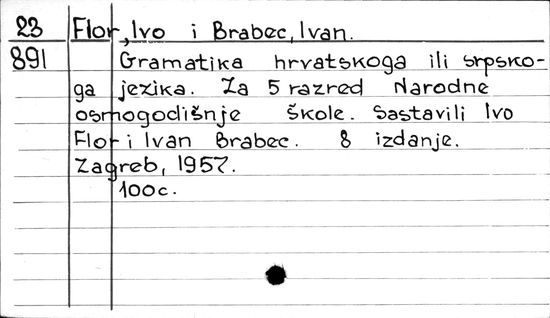 23 Flor, Ivo i Brabec, Ivan.
891 Gramatika hrvatskoga ili srpsko-
ga jezika. Za 5 razred Narodne
osmogodišnje škole. Sastavili Ivo
Flor i Ivan Brabec. 8 izdanje.
Zagreb, 1957.
100c.